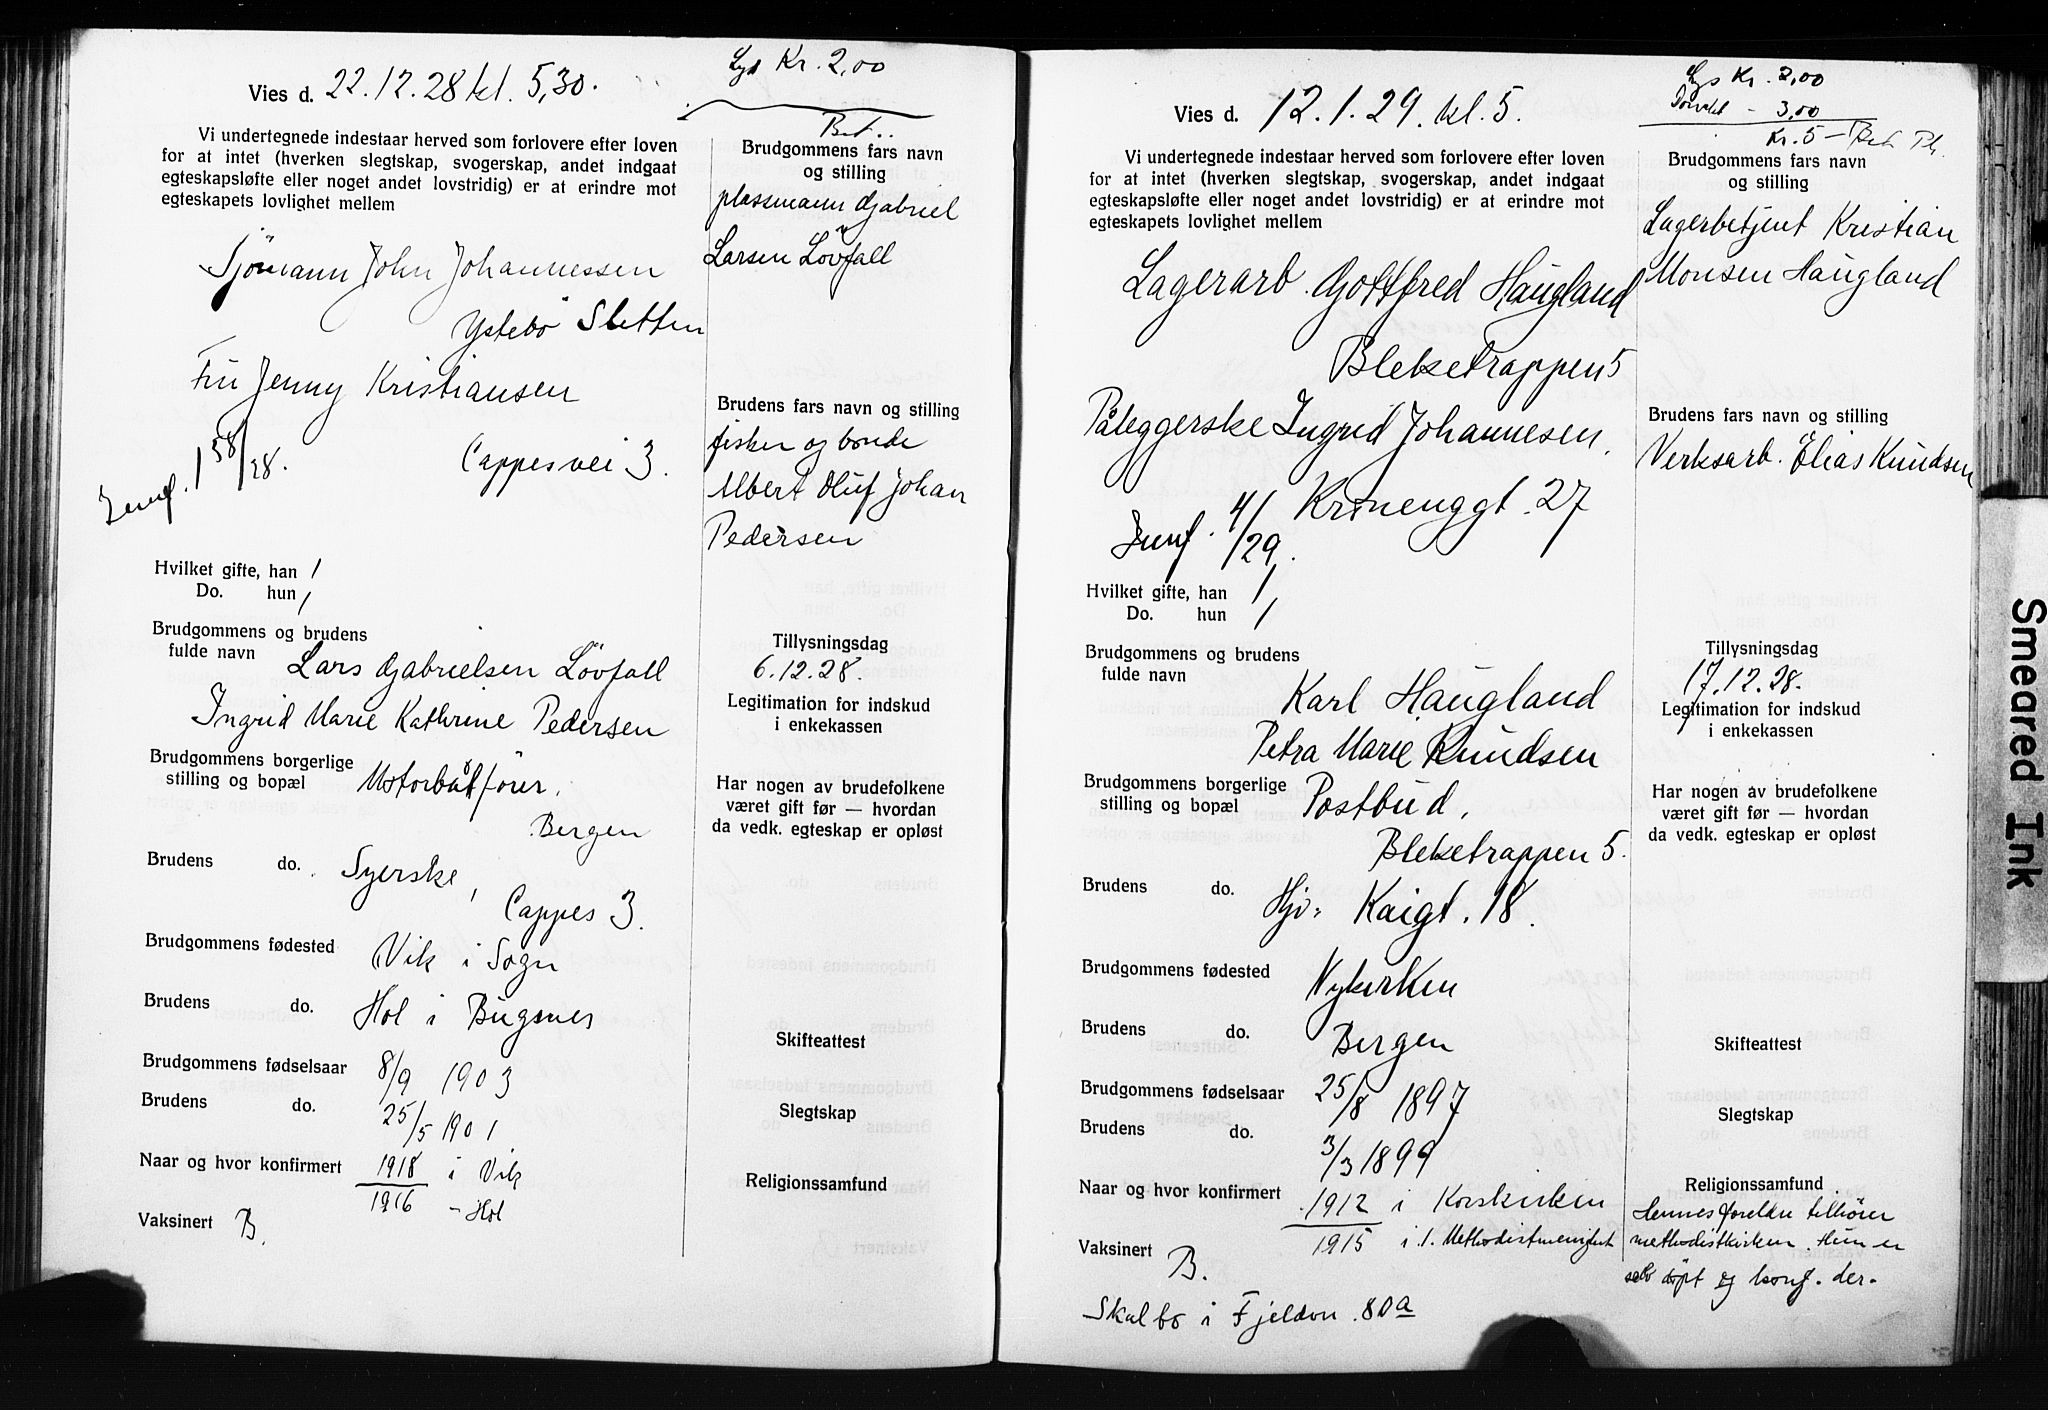 Vies d. 22.12.28 kl. 5,30.
Lys Kr. 2,00
Bet..
Vi undertegnede indestaar herved som forlovere efter loven
for at intet (hverken slegtskap, svogerskap, andet indgaat
egteskapsløfte eller noget andet lovstridig) er at erindre mot
egteskapets lovlighet mellem
Brudgommens fars navn
og stilling
plassmann Gabriel
Larsen Lövfall
Sjömann John Johannessen
Ystebö Sletten
Fru Jenny Kristiansen
Cappesvei 3.
Junf. 1 58/28.
Brudens fars navn og stilling
fisker og bonde
Albert Oluf Johan
Pedersen
Hvilket gifte, han 1
Do. hun 1
Brudgommens og brudens
fulde navn Lars Gabrielsen Lövfall
Ingrid Marie Kathrine Pedersen
Tillysningsdag
6.12.28.
Legitimation for indskud
i enkekassen
Brudgommens borgerlige
stilling og bopæl Motorbåtförer,
Bergen
Har nogen av brudefolkene
været gift før — hvordan
da vedk. egteskap er opløst
Brudens do. Syerske,
Cappes 3.
Brudgommens fødested Vik i Sogn
Brudens do. Hol i Bugsnes
Skifteattest
Brudgommens fødselsaar 8/9 1903
Brudens do. 25/5 1901
Slegtskap
Naar og hvor konfirmert 1918 i Vik
1916 - Hol
Religionssamfund
Vaksinert B.
Vies d. 12.1.29. kl. 5.
Lys Kr. 2,00
- 3,00
Kr. 5 - Bet
Vi undertegnede indestaar herved som forlovere efter loven
for at intet (hverken slegtskap, svogerskap, andet indgaat
egteskapsløfte eller noget andet lovstridig) er at erindre mot
egteskapets lovlighet mellem
Brudgommens fars navn
og stilling
Lagerbetjent Kristian
Monsen Haugland
Lagerarb. Gottfred Haugland
Bleketrappen 5
Påleggerske Ingrid Johannesen,
Kronenggt. 27
Junf. 4/29.
Brudens fars navn og stilling
Verksarb. Elias Knudsen
Hvilket gifte, han 1
Do. hun 1
Brudgommens og brudens
fulde navn
Karl Haugland
Petra Marie Knudsen
Tillysningsdag
17.12.28.
Legitimation for indskud
i enkekassen
Brudgommens borgerlige
stilling og bopæl Postbud,
Bleketrappen 5.
Har nogen av brudefolkene
været gift før — hvordan
da vedk. egteskap er opløst
Brudens do. Hjv: Kaigt. 18.
Brudgommens fødested Nykirken
Brudens do. Bergen
Skifteattest
Brudgommens fødselsaar 25/8 1897
Brudens do. 3/3 1899
Slegtskap
Naar og hvor konfirmert 1912 i Korskirken
1915 i 1. Methodistmenighet
Religionssamfund
Hennes foreldre tilhörer
methodistkirken. Hun er
selv döpt og konf. der.
Vaksinert B.
Skal bo i Fjeldvn. 80a
Smeared Ink